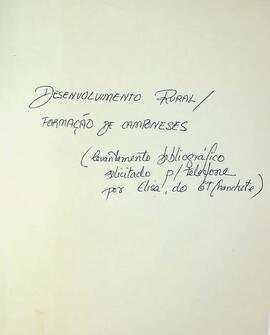 DESENVOLVIMENTO RURAL/
FORMAÇÃO DE CAMPONESES
(levantamento bibliográfico
solicitado p/ telefone
por Elisa, do GT/Manchete)